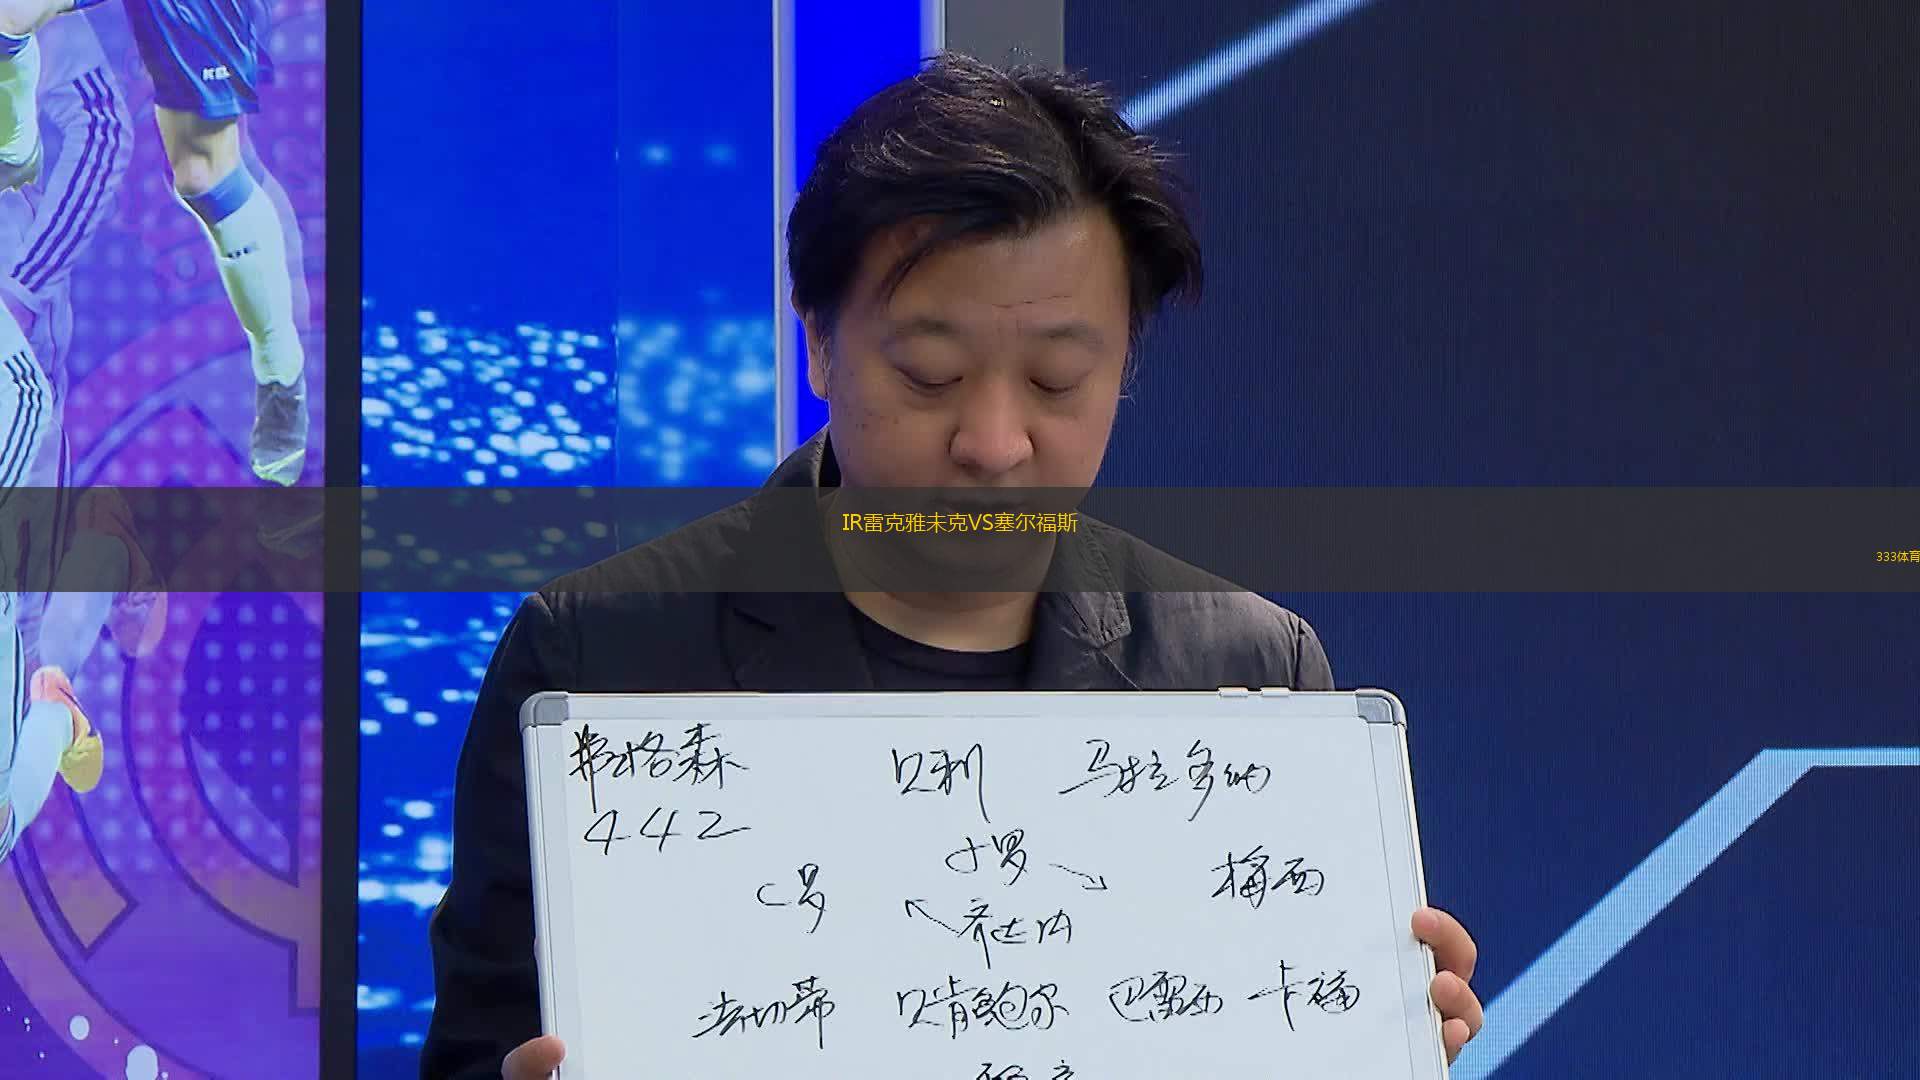 IR雷克雅未克VS塞尔福斯
333体育
弗格森 贝利 马拉多纳
442
C罗 小罗 梅西
齐达内
法切蒂 贝肯鲍尔 巴雷西 卡福